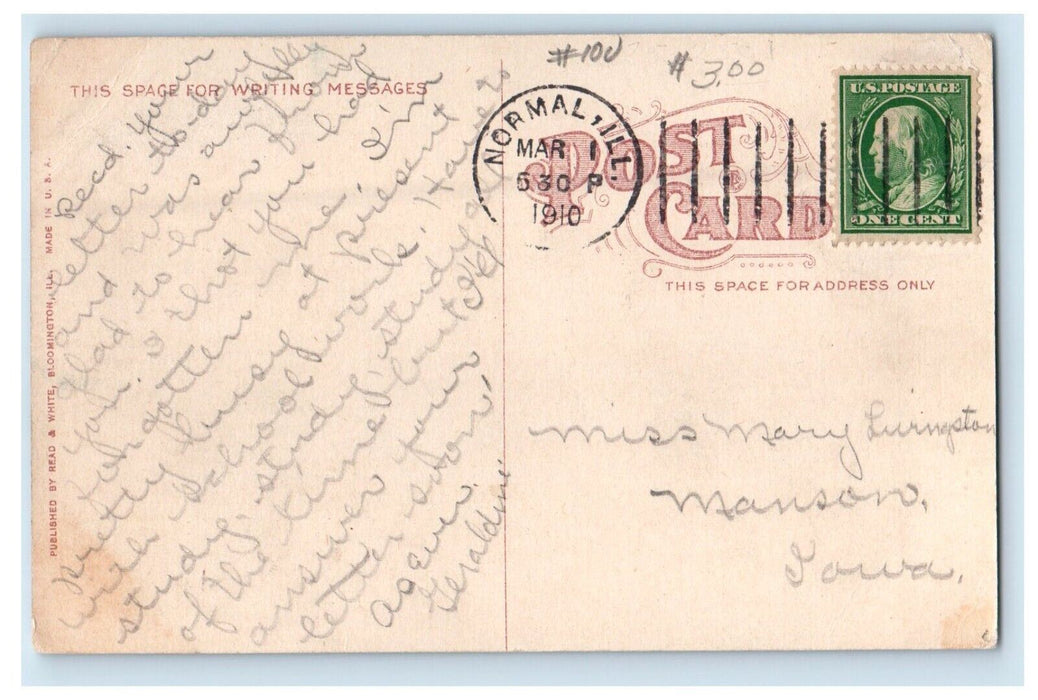 #100
$3.00
THIS SPACE FOR WRITING MESSAGES
NORMAL, ILL.
MAR 1
530 P
1910
POST
CARD
U.S. POSTAGE
ONE CENT
THIS SPACE FOR ADDRESS ONLY
PUBLISHED BY READ & WHITE, BLOOMINGTON, ILL. MADE IN U.S.A.
Recd. your
letter to-day
and was awfully
glad to hear from
you. I thot you had
forgotten me. I'm
pretty busy at present
with school work. Have
study, study, study
all the time, but I'll
answer your
letter soon.
Geraldine
Miss Mary Livingston
Manson,
Iowa.